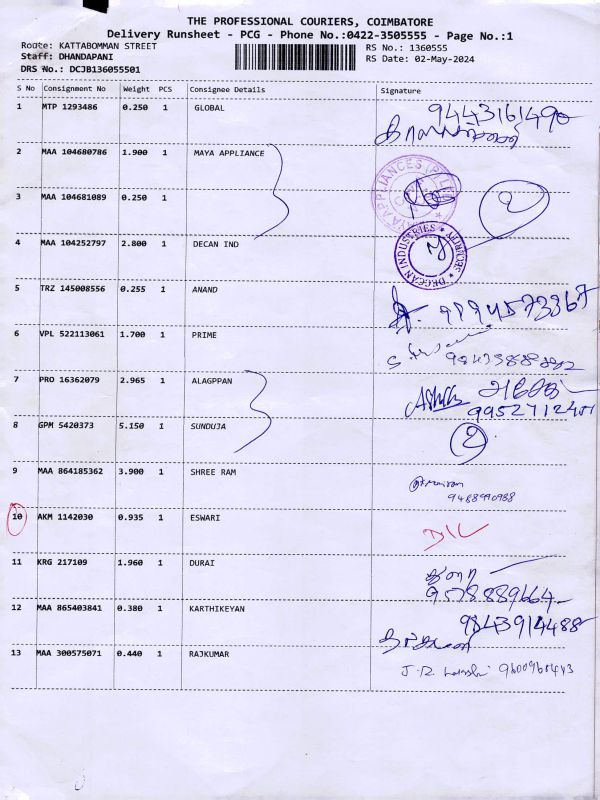 THE PROFESSIONAL COURIERS, COIMBATORE
Delivery Runsheet - PCG - Phone No.:0422-3505555 - Page No.:1
Route: KATTABOMMAN STREET
Staff: DHANDAPANI
DRS No.: DCJB136055501
RS No.: 1360555
RS Date: 02-May-2024
S No Consignment No Weight PCS Consignee Details Signature
1 MTP 1293486 0.250 1 GLOBAL 9443161490
2 MAA 104680786 1.900 1 MAYA APPLIANCE
3 MAA 104681089 0.250 1 2
4 MAA 104252797 2.800 1 DECAN IND
DECCAN INDUSTRIES
5 TRZ 145008556 0.255 1 ANAND 9894573367
6 VPL 522113061 1.700 1 PRIME
7 PRO 16362079 2.965 1 ALAGPPAN
8 GPM 5420373 5.150 1 SUNDUJA 2
9 MAA 864185362 3.900 1 SHREE RAM
9488990988
10 AKM 1142030 0.935 1 ESWARI D/L
11 KRG 217109 1.960 1 DURAI
9578889664
12 MAA 865403841 0.380 1 KARTHIKEYAN 9843914488
13 MAA 300575071 0.440 1 RAJKUMAR J.R.